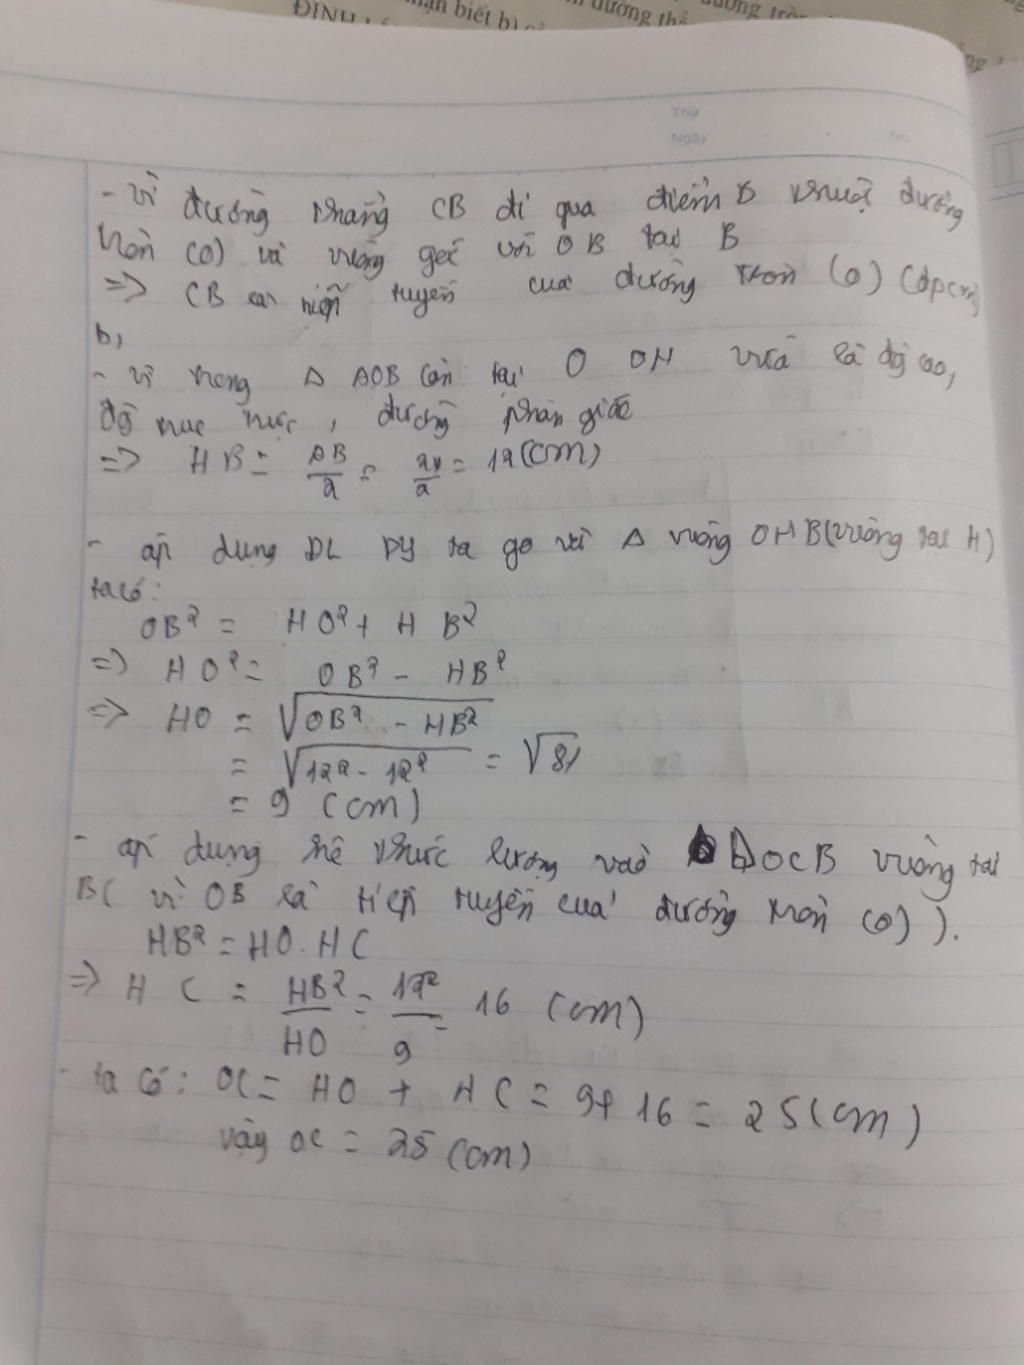 ĐỊNH
biết b)
đường
đường tròn
Thứ
Ngày
No.
- Vì đường thẳng CB đi qua điểm B thuộc đường
tròn (O) và vuông góc với OB tại B
=> CB là tiếp tuyến của đường tròn (O) (đpcm)
b,
- Vì trong Δ AOB cân tại O OH vừa là đg cao,
đg trung trực, đường phân giác
=> HB = AB/2 = 24/2 = 12(cm)
- áp dụng DL PY ta go với Δ vuông OHB(vuông tại H)
ta có:
OB² = HO² + HB²
=> HO² = OB² - HB²
=> HO = √OB² - HB²
= = √81
= 9 (cm)
- áp dụng hệ thức lượng vào ΔOCB vuông tại
B( vì OB là tiếp tuyến của đường tròn (O) ).
HB² = HO. HC
=> HC = HB²/HO = 12²/9 = 16 (cm)
- ta có: OC = HO + HC = 9+16 = 25(cm)
vậy OC = 25 (cm)